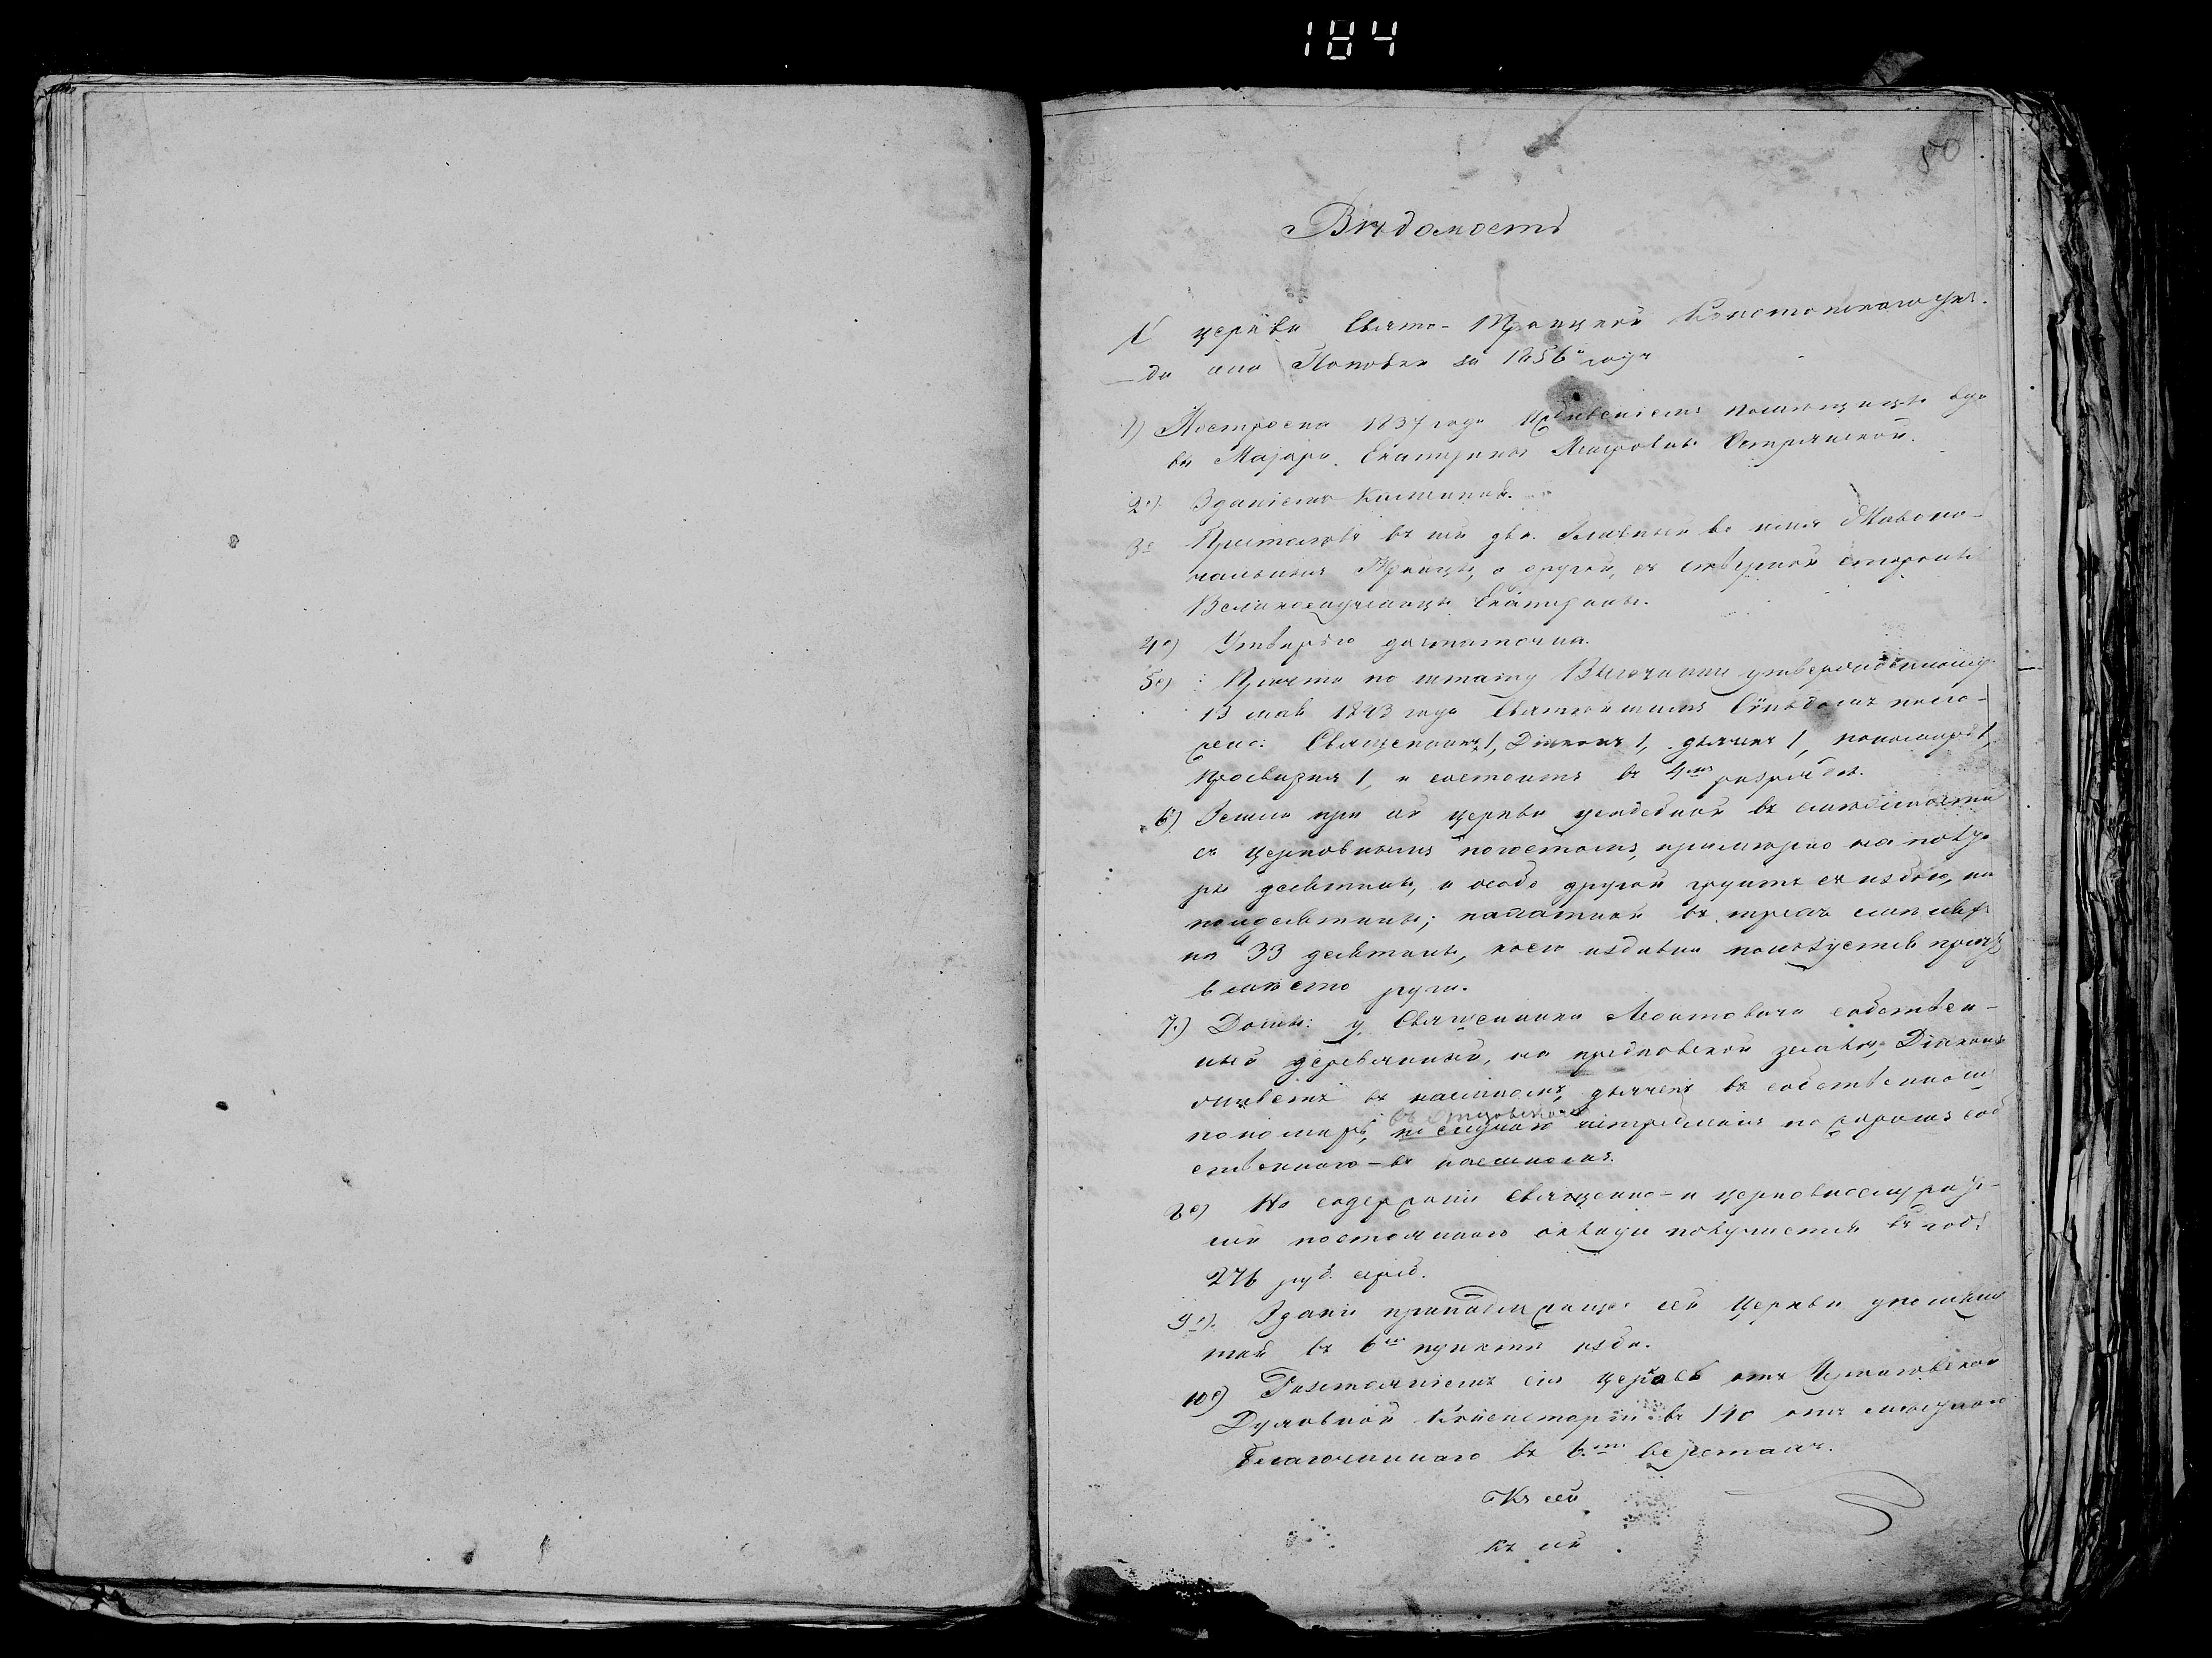 184
50
Вѣдомость
О церкви Свято-Троицкой Конотопскаго уѣз-
да села Поповки за 1856й годъ
1) Построена 1837 года тщаніемъ помѣщицы вдо
вы Маіора Екатерины
2е) Зданіемъ Каменная.
3е Престоловъ въ ней два. Главный во имя Живона-
чальныя Троицы, а другой, съ сѣверной стороны
Великомученицы Екатерины.
4е) Утварью достаточна.
5е) Причта по штату Высочайше утвержденному
13 мая 1843 года Святѣйшимъ Сѵнодомъ поло-
жено: Священникъ 1, Діаконъ 1, дьячекъ 1, пономарь 1,
Просвирня 1, и состоитъ въ 4мъ разрядѣ.
6) Земли при сей церкви усадебной въ смѣжности
съ церковнымъ погостомъ, примѣрно на полто
ры десятины, и особо другой грунтъ съ избою, на
полдесятины; пахатной въ трехъ смѣнахъ
на 33 десятины, коею издавна пользуется причтъ
вмѣсто руги.
7) Домы: у Священника собствен-
ный деревянный, на церковной землѣ, Діаконъ
живетъ въ наемномъ, дьячекъ въ собственномъ
въ отцовскомъ
пономарь, по случаю истребленія пожаромъ соб
ственнаго - въ наемномъ.
8е) На содержаніе Священно- и церковнослужите-
лей постояннаго оклада получается въ годъ
276 руб. сереб.
9е). Зданіе принадлежащее сей Церкви упомяну
тая въ 6мъ пунктѣ изба.
10е) Разстояніемъ сія церковь отъ Черниговской
Духовной Консисторіи въ 140 отъ мѣстнаго
Благочиннаго въ 6ти верстахъ.
Къ сей
къ сей